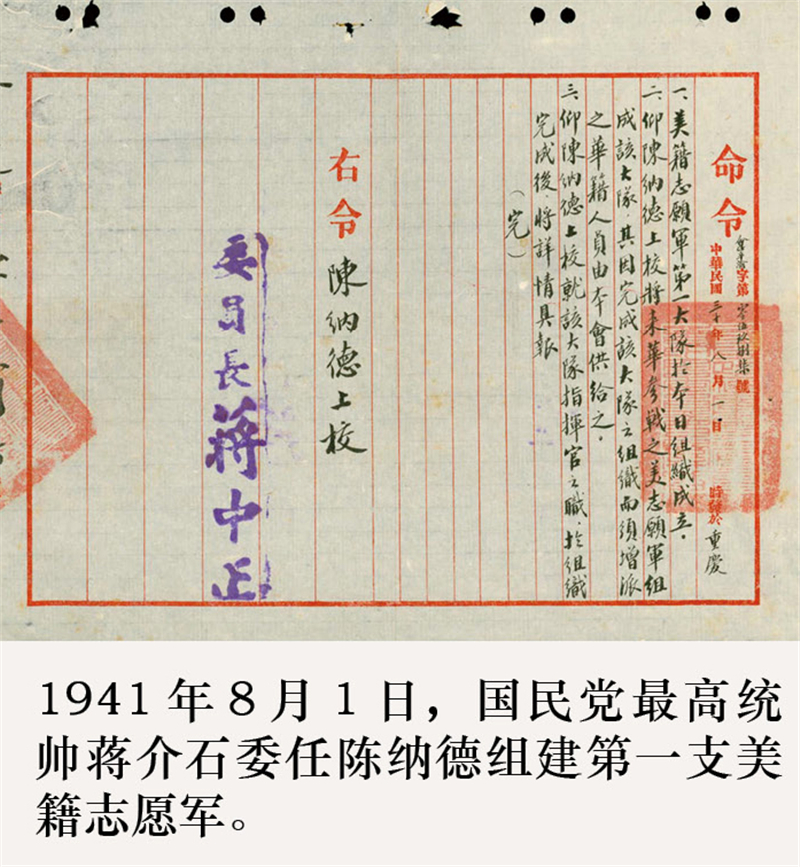 命令
中華民國三十年八月一日
時 於重慶
一、美籍志願軍第一大隊於本日組織成立。
二、仰陳納德上校將來華參戰之美志願軍組
成該大隊，其因完成該大隊之組織而須增派
之華籍人員由本會供給之。
三、仰陳納德上校就該大隊指揮官之職，於組織
完成後，將詳情具報
（完）
右令
陳納德上校
委員長蔣中正
1941年8月1日，国民党最高统
帅蒋介石委任陈纳德组建第一支美
籍志愿军。